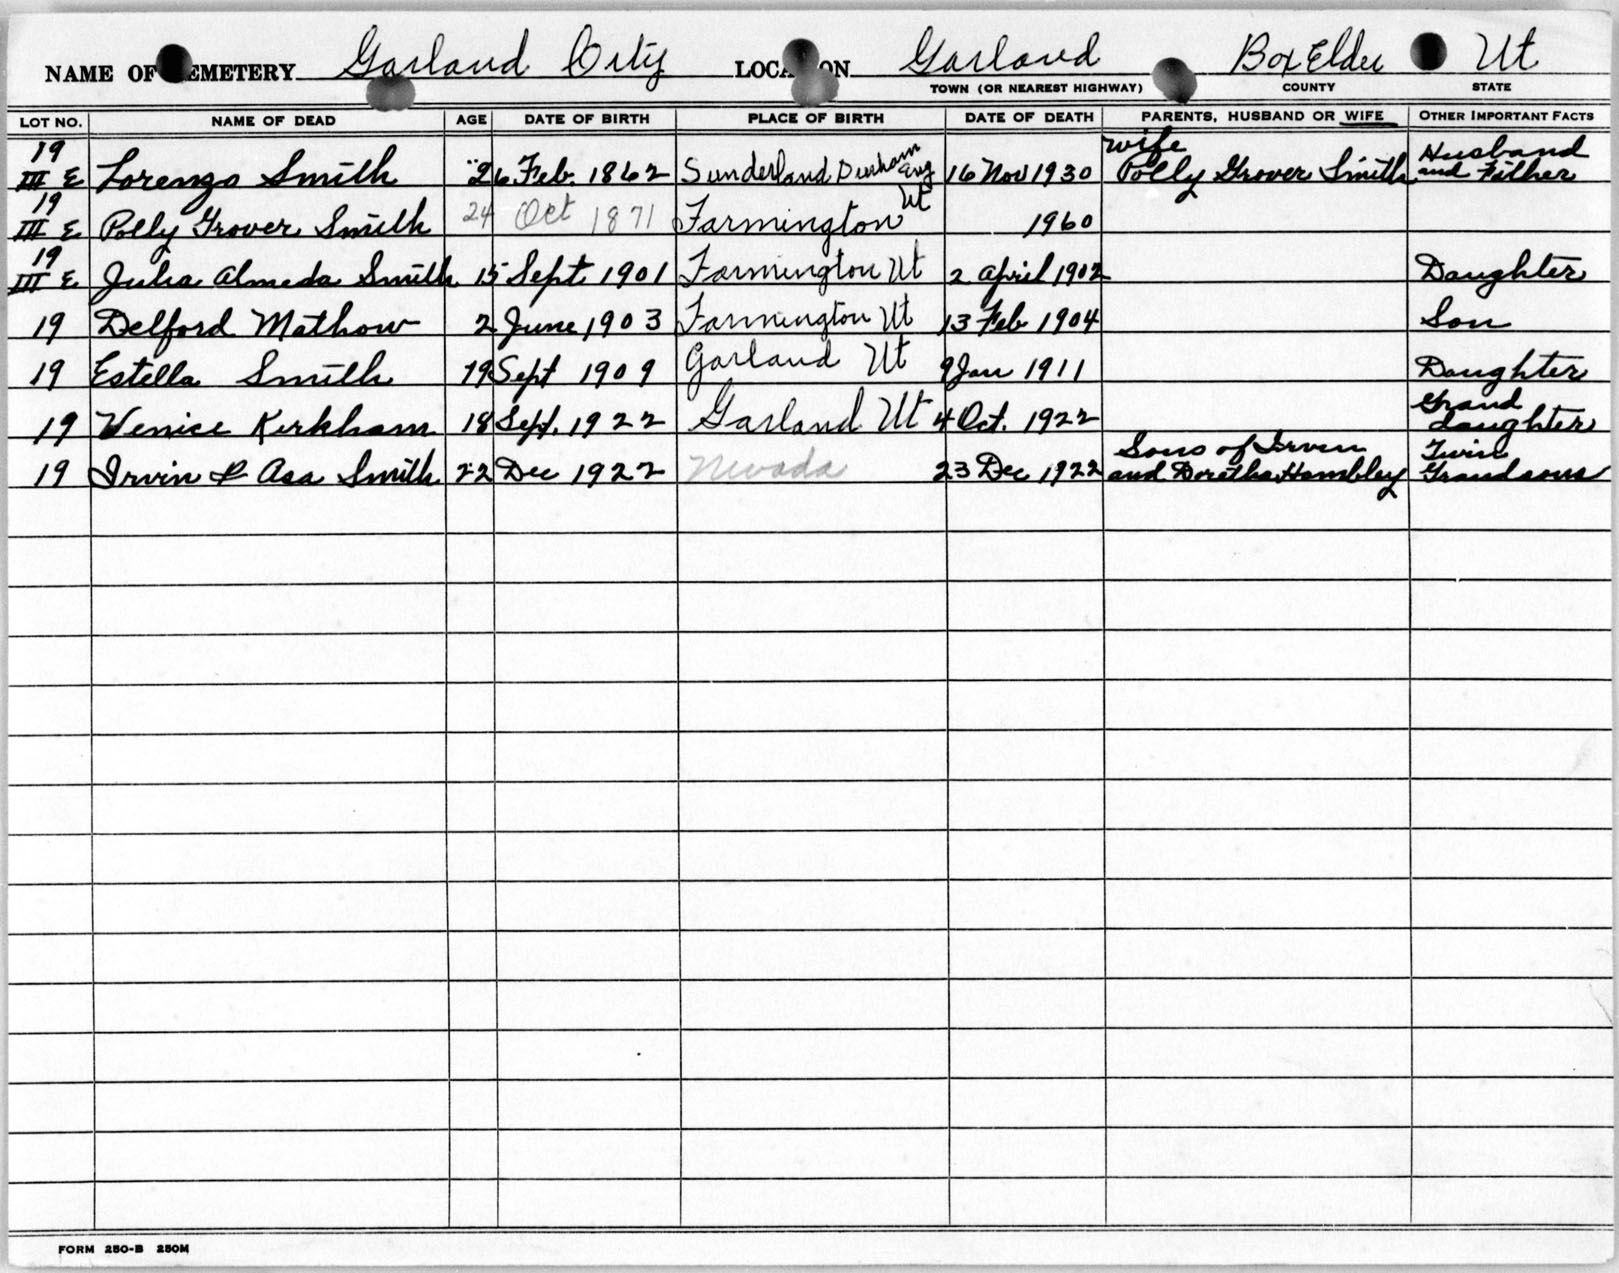 NAME OF CEMETERY Garland City LOCATION Garland Box Elder Ut
TOWN (OR NEAREST HIGHWAY) COUNTY STATE
LOT NO. NAME OF DEAD AGE DATE OF BIRTH PLACE OF BIRTH DATE OF DEATH PARENTS, HUSBAND OR WIFE OTHER IMPORTANT FACTS
19 III E Lorenzo Smith 26 Feb. 1862 Sunderland Durham Eng 16 Nov 1930 wife Polly Grover Smith Husband and Father
19 III E Polly Grover Smith 24 Oct 1871 Farmington Ut 1960
19 III E Julia Almeda Smith 15 Sept 1901 Farmington Ut 2 April 1902 Daughter
19 Delford Mathow 2 June 1903 Farmington Ut 13 Feb 1904 Son
19 Estella Smith 19 Sept 1909 Garland Ut 9 Jan 1911 Daughter
19 Venice Kirkham 18 Sept. 1922 Garland Ut 4 Oct. 1922 Grand daughter
19 Irvin & Asa Smith 22 Dec 1922 Nevada 23 Dec 1922 Sons of Irvin and Doretha Hambley Twin Grandsons
FORM 250-B 250M